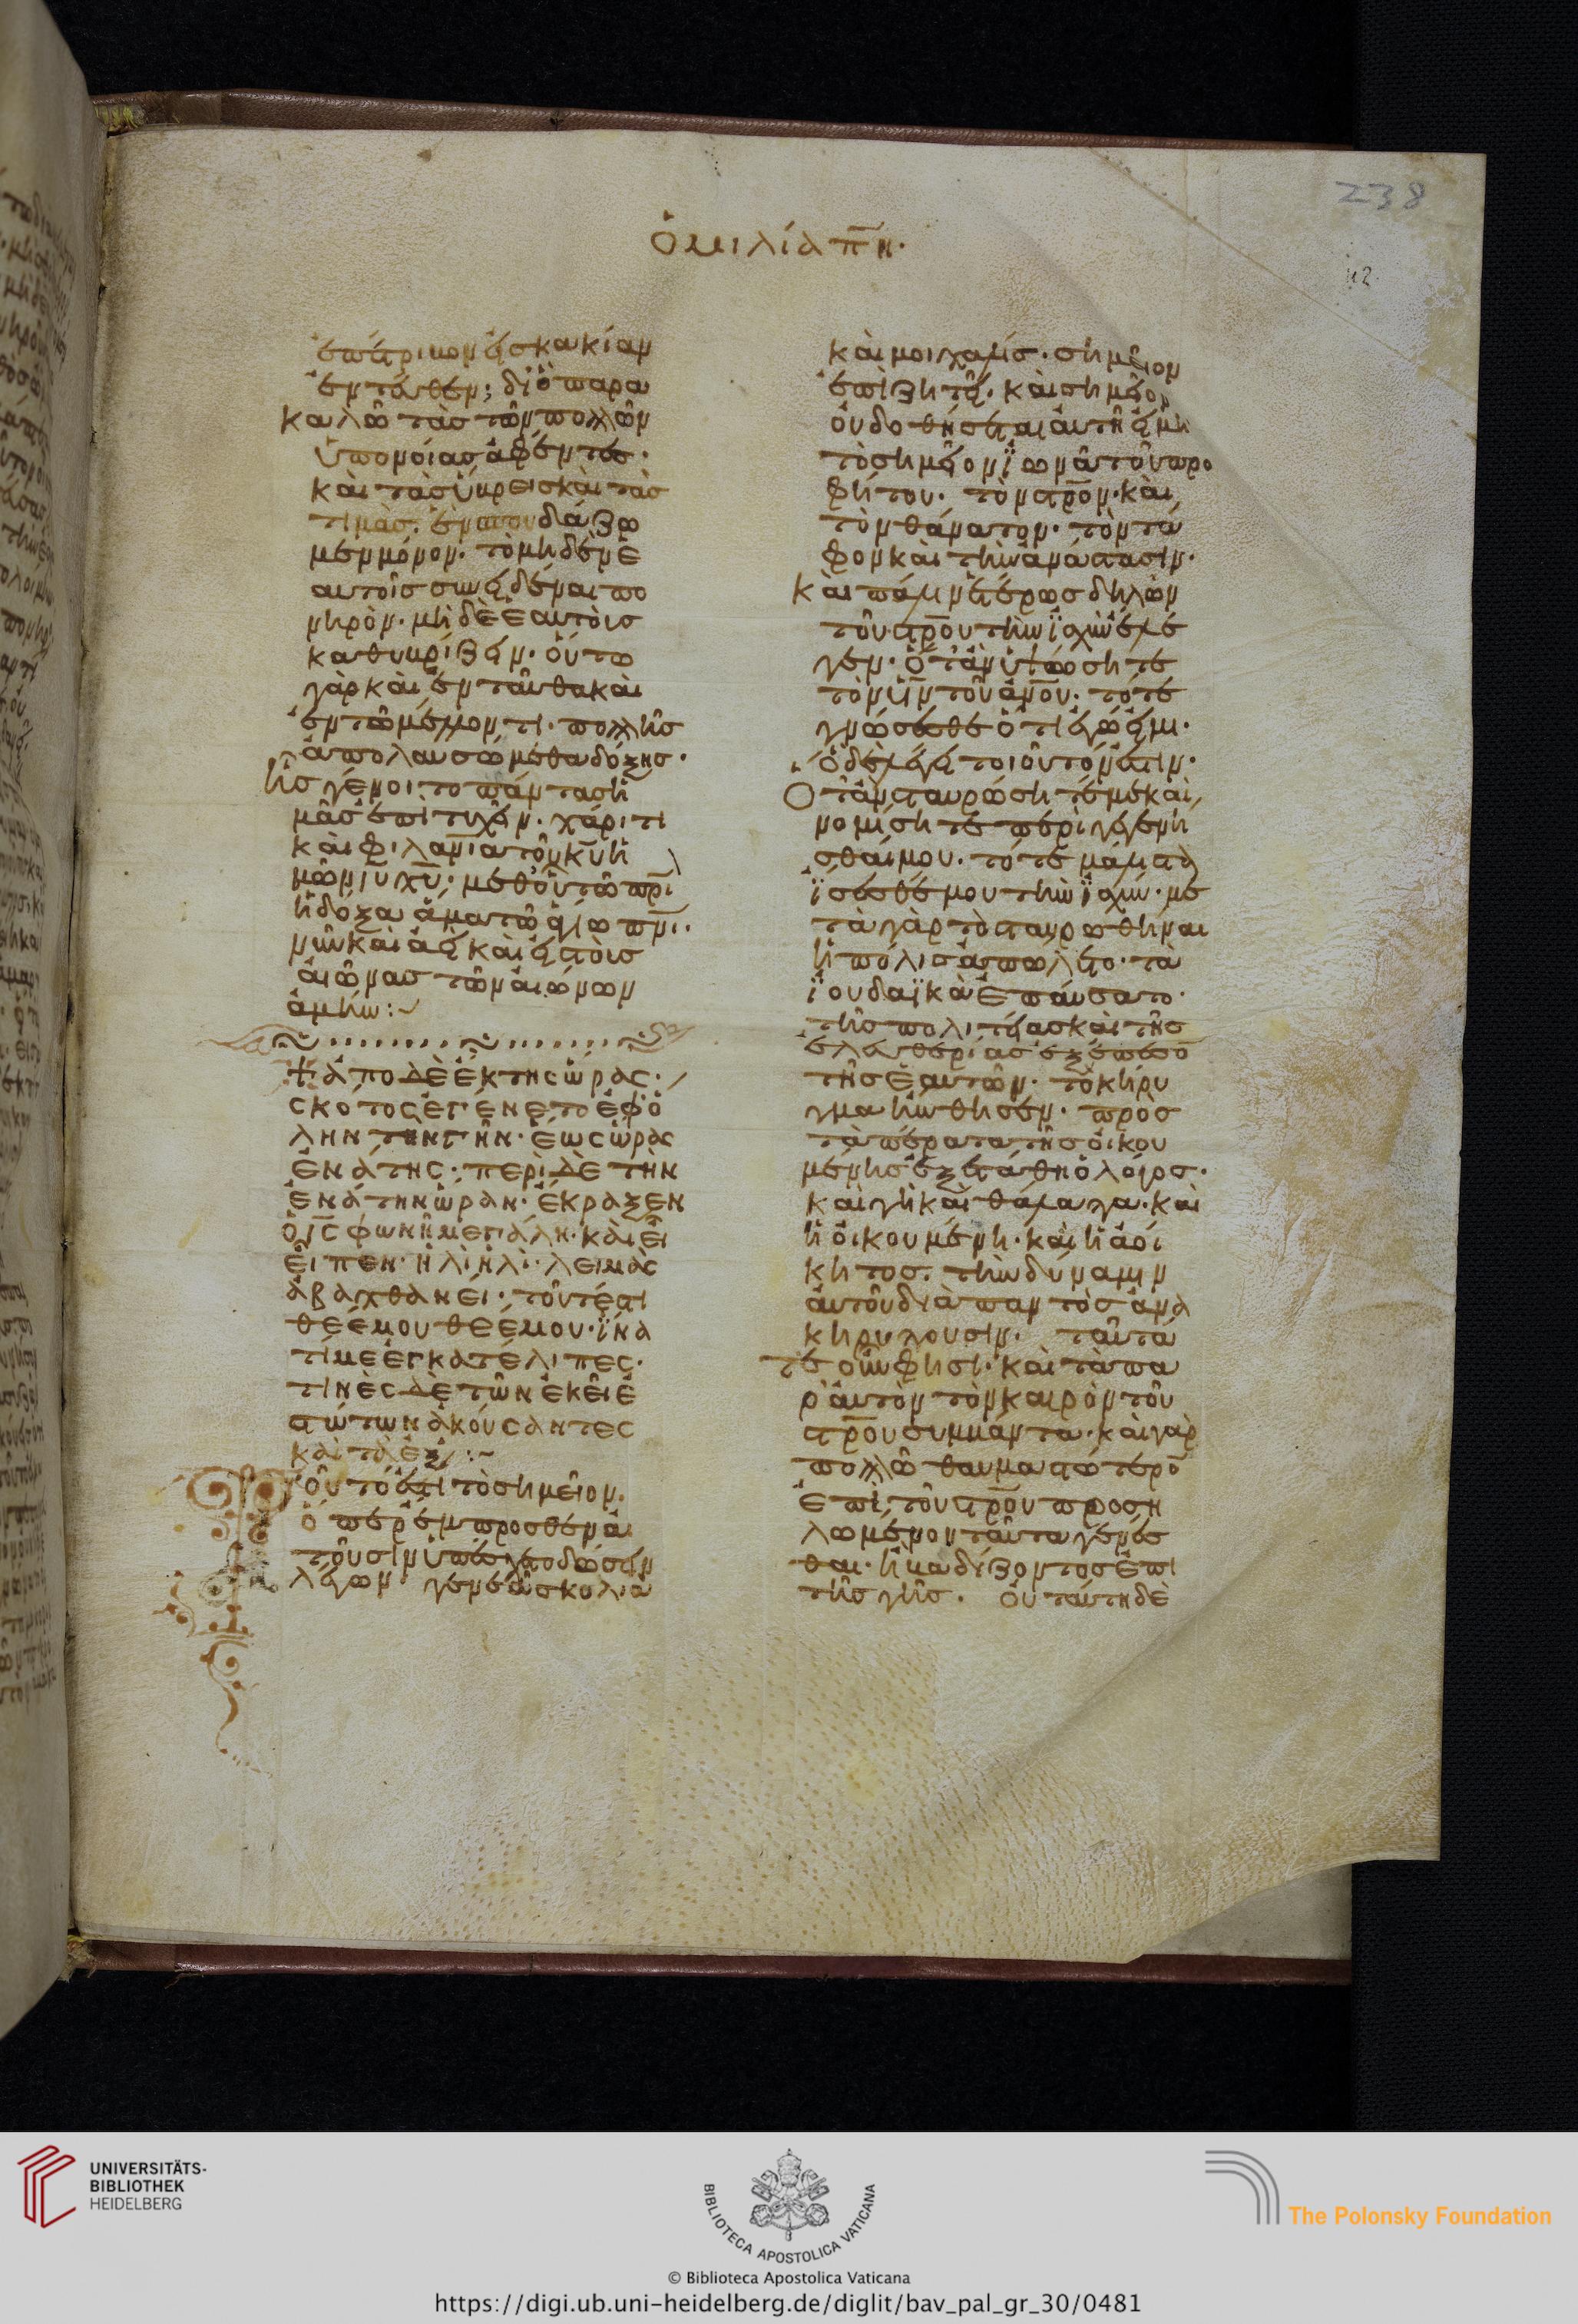 238
ὁμιλία π̅η·
42
ἐπαίρομεν εἰς κακίαν
ἐντεῦθεν; διὸ παρα
καλῶ τὰς τῶν πολλῶν
ὑπονοίας ἀφέντες·
καὶ τὰς ὕβρεις καὶ τὰς
τιμὰς. ἓν σπουδάζω
μεν μόνον· τὸ μηδὲν ἑ
αυτοῖς συνειδέναι πο
νηρὸν· μηδὲ ἑαυτοὺς
καθυβρίζειν· οὕτω
γὰρ καὶ ἐνταῦθα καὶ
ἐν τῶ μέλλοντι· πολλῆς
ἀπολαυσώμεθα δόξης·
ἧς γένοιτο πάντας ἡ
μᾶς ἐπιτυχεῖν· χάριτι
καὶ φιλαν̅ια τοῦ κ̅υ ἡ
μῶν ι̅υ χ̅υ· μεθ' οὗ τῶ π̅ρι
ἡ δόξα ἅμα τῶ ἁγίω π̅νι·
νῦν καὶ ἀεὶ καὶ εἰς τοὺς
αἰῶνας τῶν αἰώνων
ἀμήν:~
ἀπο δὲ ἕκτης ὥρας·
σκότος ἐγένετο ἐφ' ὅ
λην τὴν γῆν· ἕως ὥρας
ἐνάτης· περὶ δὲ τὴν
ἐνάτην ὥραν· ἔκραξεν
ὁ ι̅ς φωνῆ μεγάλη· καὶ εἶ
εἶπεν· ἠλὶ ἠλὶ· λειμὰς
ἀβαχθανεί· τουτέστι
θεέ μου θεέ μου· ἵνα
τί με ἐγκατέλιπες·
τινὲς δὲ τῶν ἐκεῖ ἑ
στώτων ἀκούσαντες
καὶ τὰ ἑξ:~
Τοῦτό ἐστι τὸ σημεῖον·
ὅπερ ἔμπροσθεν αἰ
τοῦσιν ὑπέσχετο δώσειν
λέγων· γενεὰ σκολιὰ
καὶ μοιχαλὶς· σημεῖον
ἐπιζητεῖ· καὶ σημεῖον
οὐ δοθήσεται αὐτῆ εἰ μὴ
τὸ σημεῖον ϊωνᾶ τοῦ προ
φήτου· τὸν στ̅ρον· καὶ
τὸν θάνατον· τὸν τά
φον καὶ τὴν ἀνάστασιν·
καὶ πάλιν ἑτέρως δηλῶν
τοῦ στ̅ρου τὴν ϊσχὺν ἔλε
γεν· ὅταν ὑψώσητε
τὸν υ̅ν τοῦ ἀν̅ου· τότε
γνώσεσθε ὅτι ἐγώ εἰμι·
ὃ δὲ λέγει τοιοῦτόν ἐστιν·
Ὅταν σταυρώσητέ με καὶ
νομίσητε περιγεγενῆ
σθαί μου· τότε μάλιστα
ϊσεσθέ μου τὴν ϊσχὺν· με
τὰ γὰρ τὸ σταυρωθῆναι
ἡ πόλις ἀπωλέτο· τὰ
ϊουδαϊκὰ ἐπαύσατο·
τῆς πολιτείας καὶ τῆς
ἐλευθερίας ἐξέπεσο̅
τῆς ἑαυτῶν· τὸ κήρυ
γμα ἤνθησεν· πρὸς
τὰ πέρατα τῆς οἰκου
μένης ἐξετάθη ὁ λόγος·
καὶ γῆ καὶ θάλαττα· καὶ
ἡ οἰκουμένη· καὶ ἡ ἀοί
κητος· τὴν δύναμιν
αὐτοῦ διὰ παντὸς ἀνα
κηρύττουσιν· ταῦτά
τε οὖν φησι· καὶ τὰ πα
ρ' αὐτὸν τὸν καιρὸν τοῦ
στ̅ρου συμβάντα· καὶ γὰρ
πολλῶ θαυμαστώτερο̅
ἐπὶ τοῦ στ̅ρου προση
λωμένου ταῦτα γενέσ
θαι· ἢ βαδίζοντος ἐπὶ
τῆς γῆς· οὐ ταύτη δὲ
UNIVERSITÄTS-
BIBLIOTHEK
HEIDELBERG
BIBLIOTECA APOSTOLICA VATICANA
The Polonsky Foundation
© Biblioteca Apostolica Vaticana
https://digi.ub.uni-heidelberg.de/diglit/bav_pal_gr_30/0481